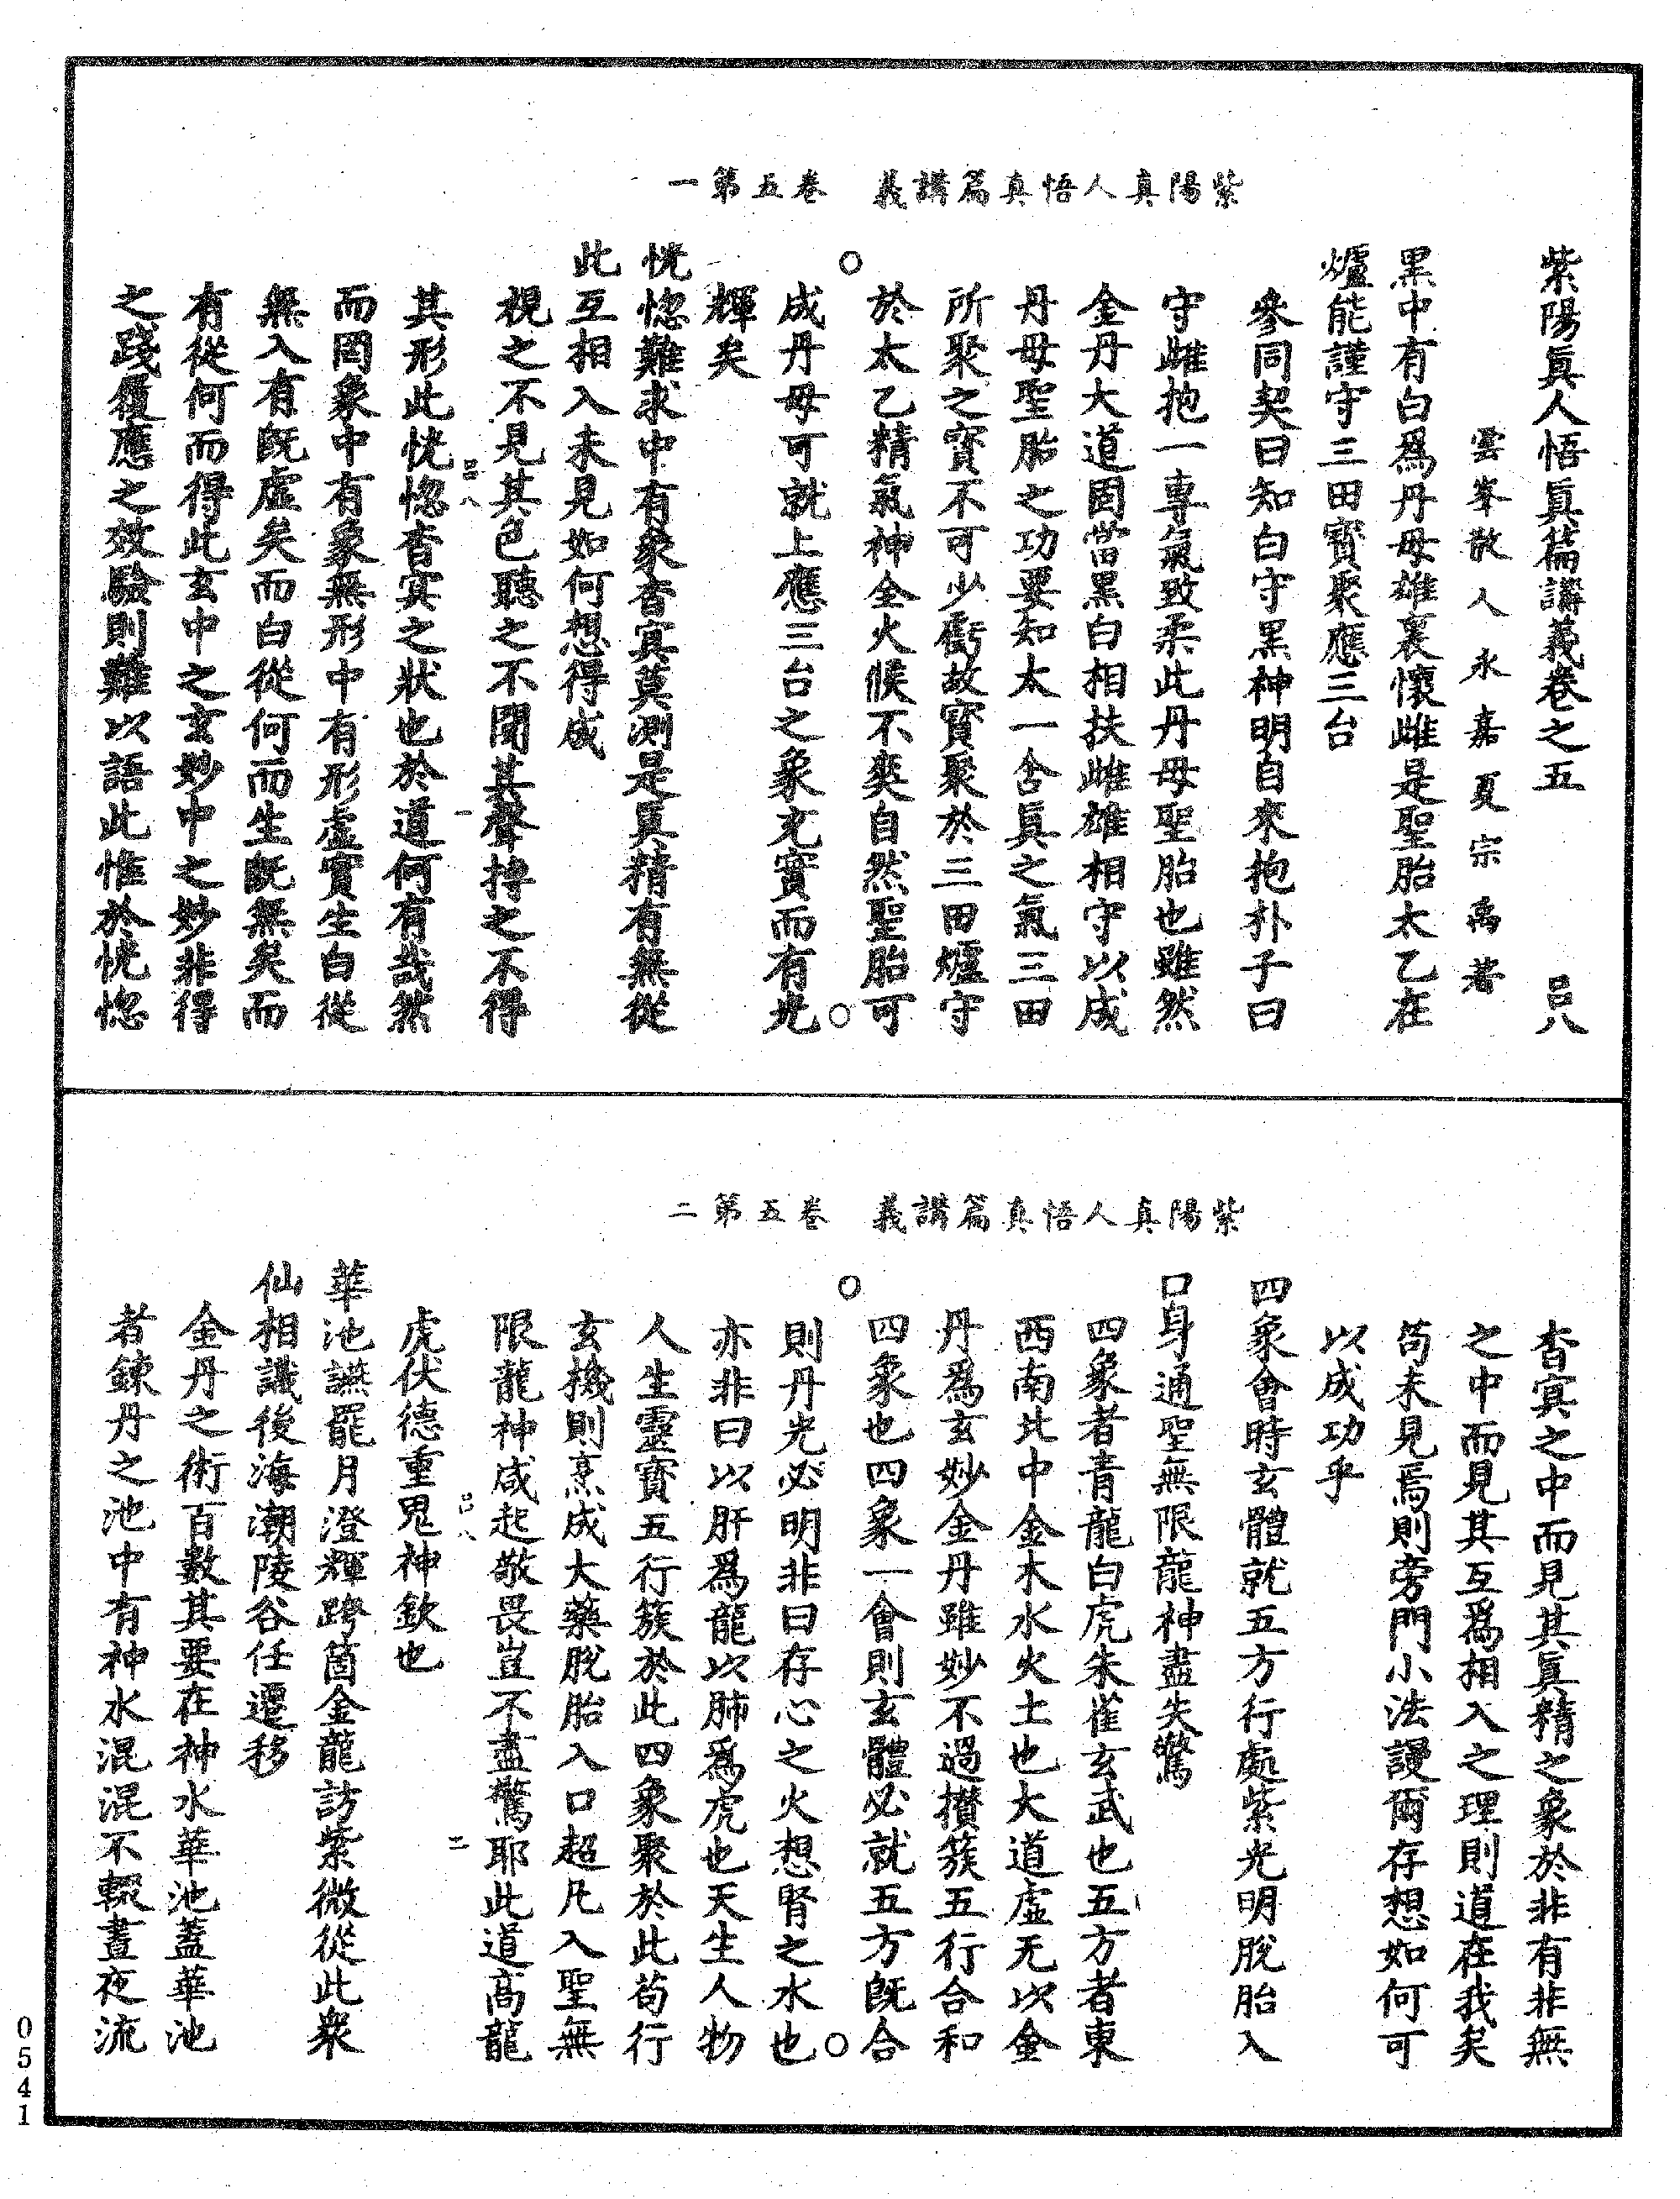 紫陽真人悟真篇講義　卷五第一
紫陽眞人悟眞篇講義卷之五　呂八
雲峯散人永嘉夏宗禹著
黑中有白爲丹母雄裏懷雌是聖胎太乙在
爐能謹守三田寶聚應三台
參同契曰知白守黑神明自來抱朴子曰
守雌抱一專氣致柔此丹母聖胎也雖然
金丹大道固當黑白相扶雌雄相守以成
丹母聖胎之功要知太一含眞之氣三田
所聚之寶不可少虧故寶聚於三田爐守
於太乙精氣神全火候不爽自然聖胎可
成丹母可就上應三台之象充實而有光
輝矣
恍惚難求中有象杳冥莫測是眞精有無從
此互相入未見如何想得成
視之不見其色聽之不聞其聲摶之不得
呂八　一
其形此恍惚杳冥之狀也於道何有哉然
而罔象中有象無形中有形虛實生白從
無入有旣虛矣而白從何而生旣無矣而
有從何而得此玄中之玄妙中之妙非得
之踐履應之效驗則難以語此惟於恍惚
紫陽真人悟真篇講義　卷五第二
杳冥之中而見其眞精之象於非有非無
之中而見其互爲相入之理則道在我矣
苟未見焉則旁門小法謾爾存想如何可
以成功乎
四象會時玄體就五方行處紫光明脫胎入
口身通聖無限龍神盡失驚
四象者青龍白虎朱雀玄武也五方者東
西南北中金木水火土也大道虛无以金
丹爲玄妙金丹雖妙不過攢簇五行合和
四象也四象一會則玄體必就五方旣合
則丹光必明非曰存心之火想腎之水也
亦非曰以肝爲龍以肺爲虎也天生人物
人生靈寶五行簇於此四象聚於此苟行
玄機則烹成大藥脫胎入口超凡入聖無
限龍神咸起敬畏豈不盡驚耶此道高龍
呂八　二
虎伏德重鬼神欽也
華池讌罷月澄輝跨箇金龍訪紫微從此衆
仙相識後海潮陵谷任遷移
金丹之術百數其要在神水華池蓋華池
者鍊丹之池中有神水混混不輟晝夜流
0541